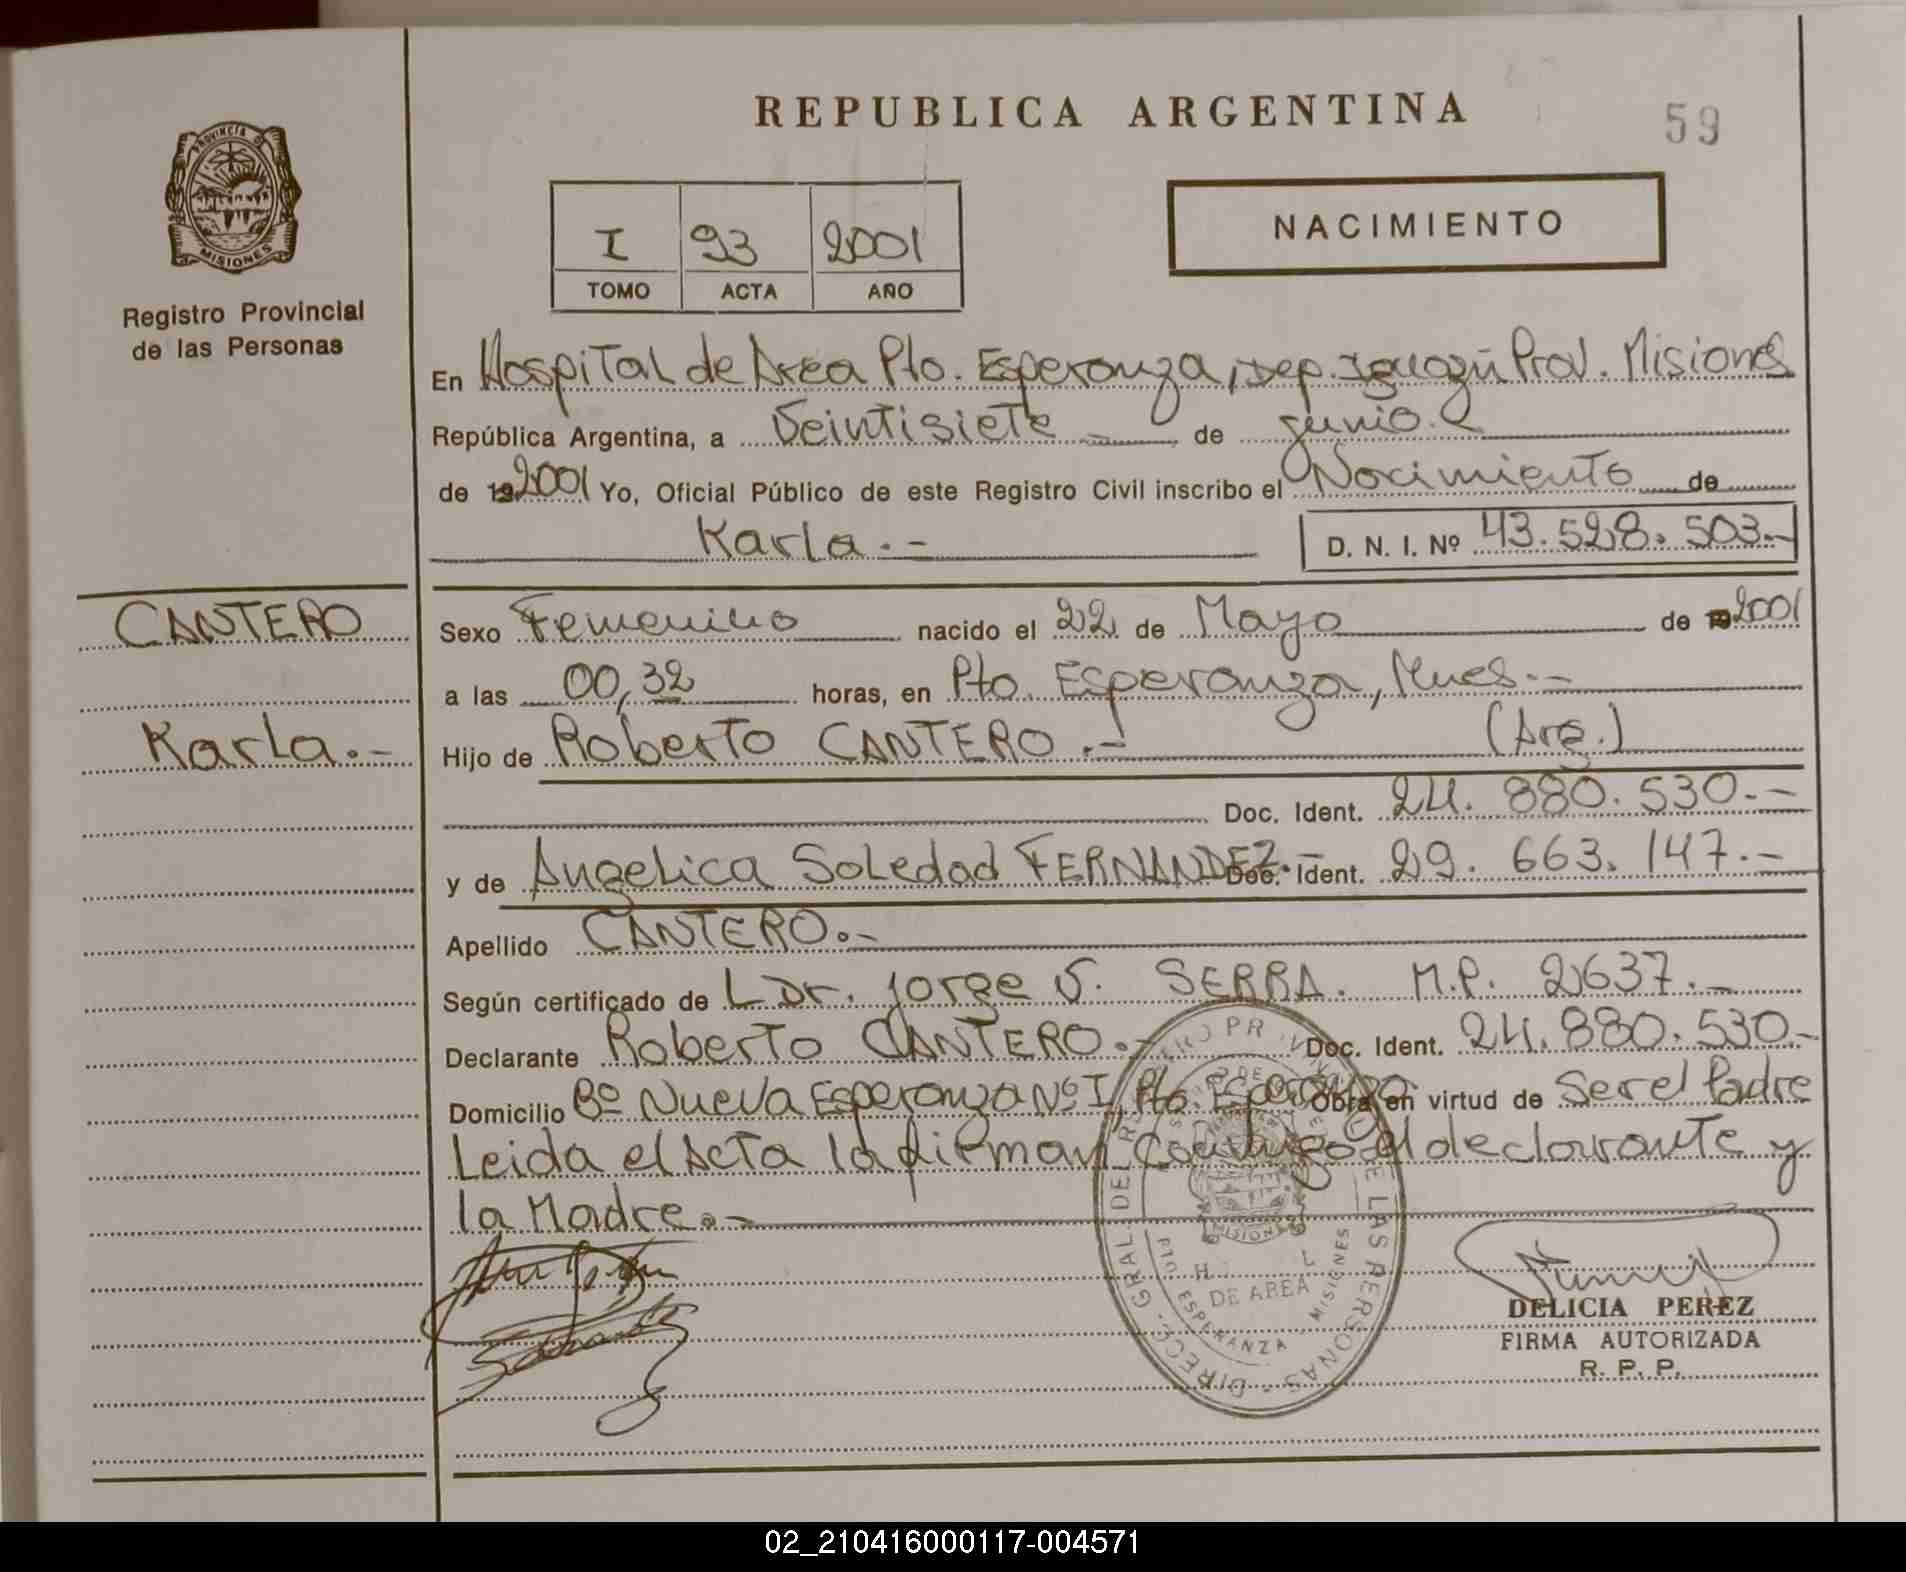 REPUBLICA ARGENTINA
59
PROVINCIA DE
MISIONES
Registro Provincial
de las Personas
I 93 2001
TOMO ACTA AÑO
NACIMIENTO
En Hospital de Area Pto. Esperanza, Dep. Iguazú Prov. Misiones
República Argentina, a Veintisiete de junio.
de 192001 Yo, Oficial Público de este Registro Civil inscribo el Nacimiento de
Karla.-
D. N. I. Nº 43.528.503.-
CANTERO
Karla.-
Sexo Femenino nacido el 22 de Mayo de 2001
a las 00,32 horas, en Pto. Esperanza, Mnes.-
Hijo de Roberto CANTERO.- (Arg.)
Doc. Ident. 24.880.530.-
y de Angelica Soledad FERNANDEZ.- Doc. Ident. 29.663.147.-
Apellido CANTERO.-
Según certificado de L Dr. Jorge V. SERRA. M.P. 2637.-
Declarante Roberto CANTERO.- Doc. Ident. 24.880.530.-
Domicilio Bº Nueva Esperanza Nº I, Pto. Esperanza Obra en virtud de Ser el Padre
Leida el Acta la firman Conmigo el declarante y
la Madre.-
DIREC. GRAL. DEL REGISTRO PROVINCIAL DE LAS PERSONAS
MISIONES
DE AREA
PTO ESPERANZA - MISIONES
DELICIA PEREZ
FIRMA AUTORIZADA
R. P. P.
02_210416000117-004571